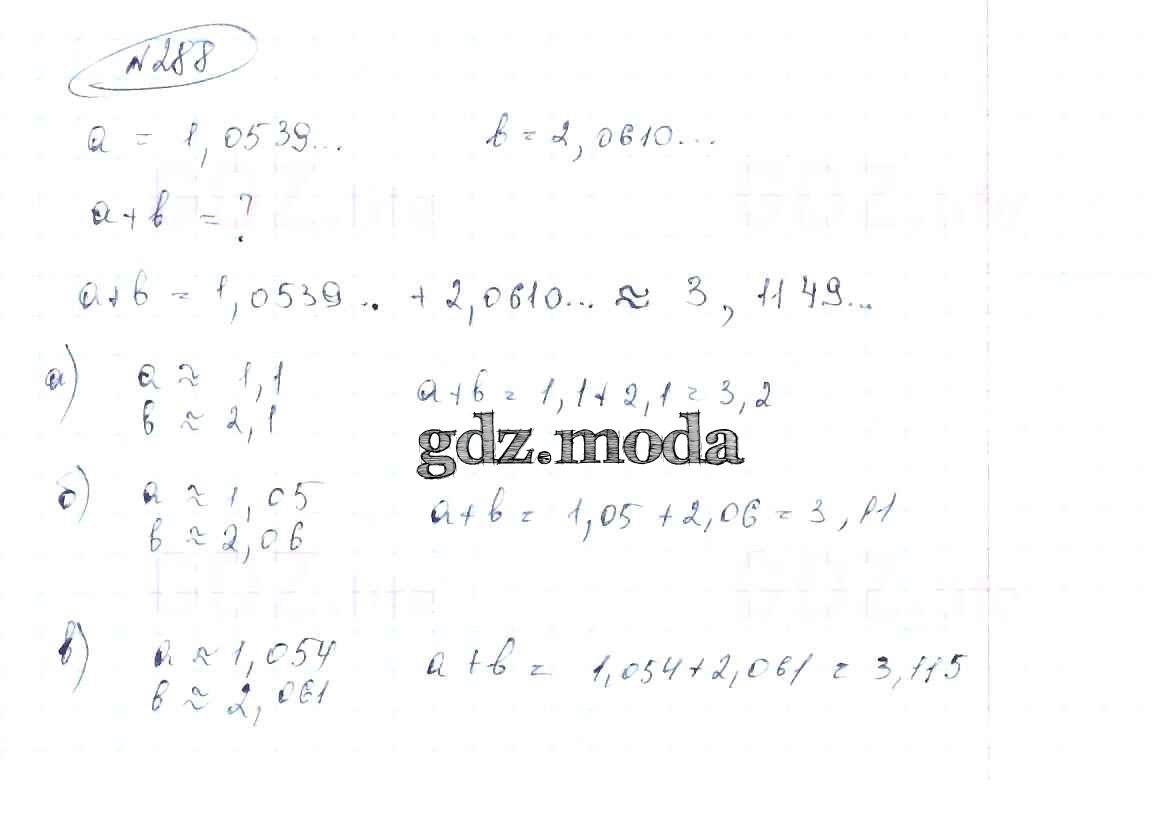 №288
a = 1,0539... b = 2,0610...
a+b = ?
a+b = 1,0539.. + 2,0610... ≈ 3,1149...
а) a ≈ 1,1 a+b = 1,1+2,1 = 3,2
b ≈ 2,1
gdz.moda
б) a ≈ 1,05 a+b = 1,05+2,06 = 3,11
b ≈ 2,06
в) a ≈ 1,054 a+b = 1,054+2,061 = 3,115
b ≈ 2,061